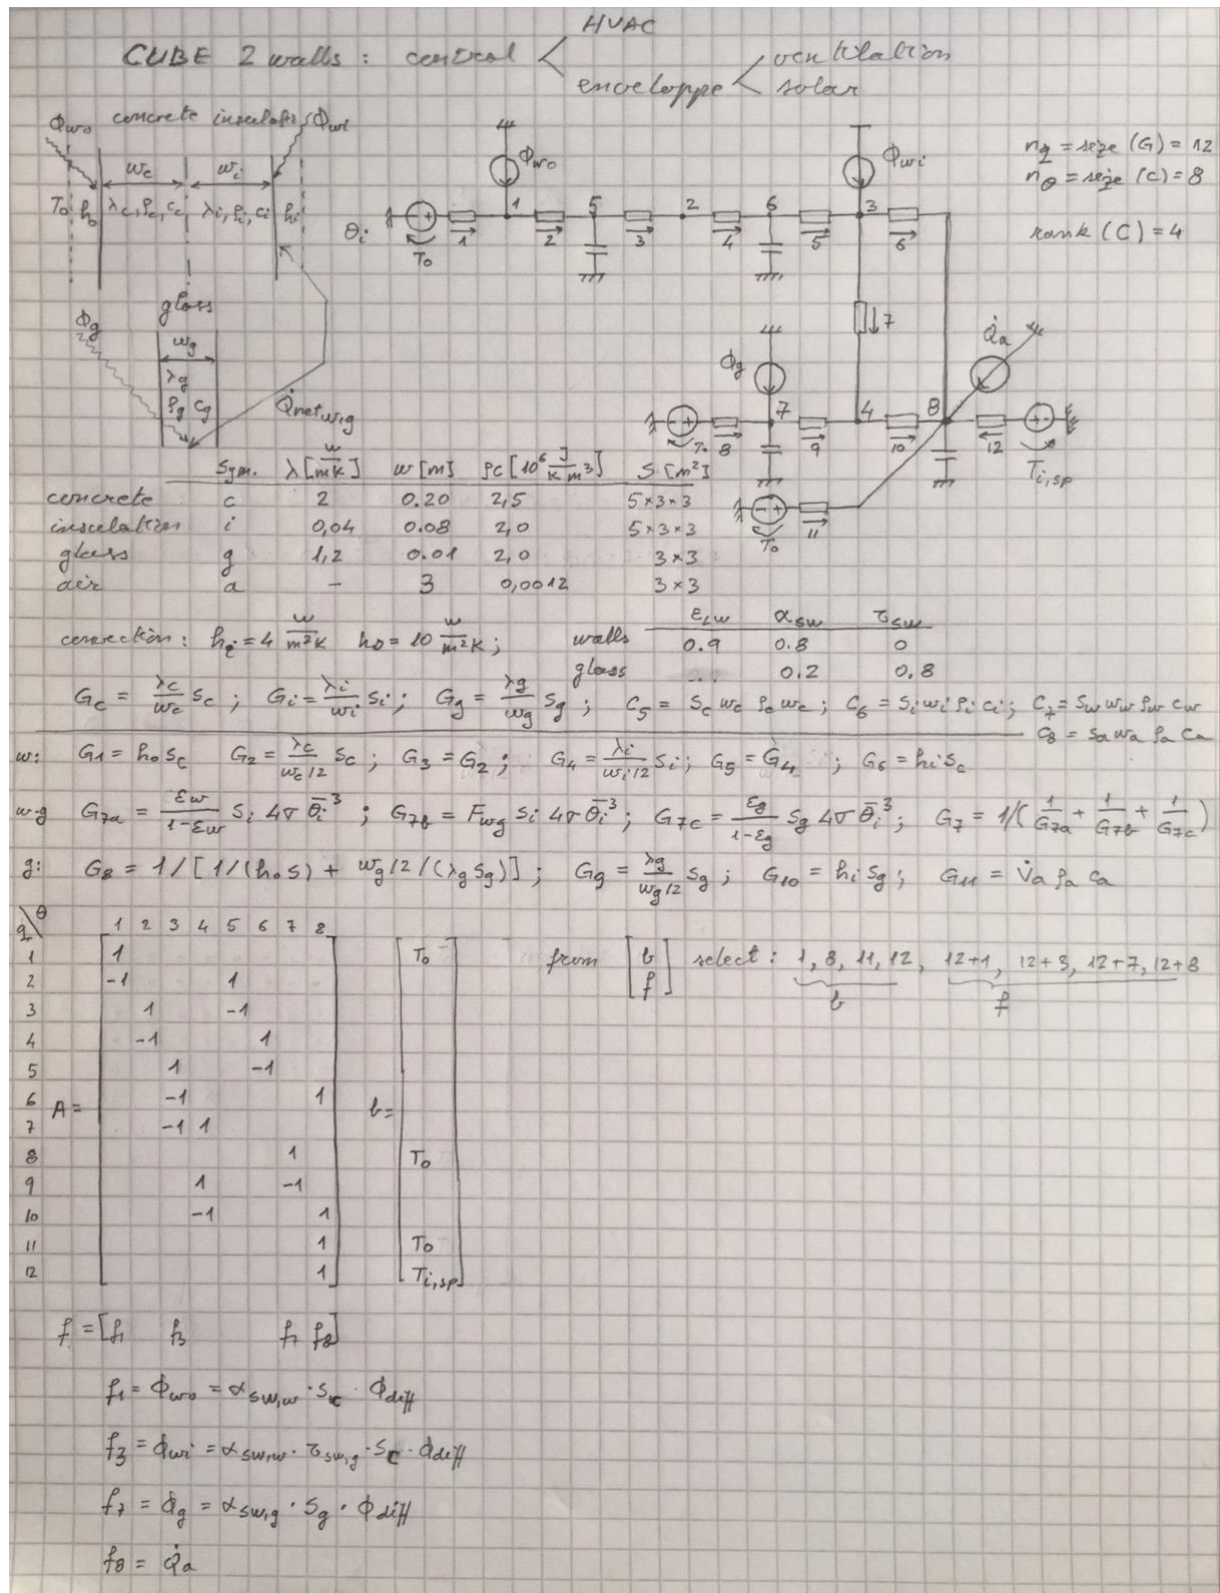 HVAC
CUBE 2 walls : control < enveloppe < ventilation
solar
Φwo concrete insulation Φwi
wc wi
To ho λc, ρc, cc λi, ρi, ci hi
Φwo Φwi
nq = size (G) = 12
nθ = size (C) = 8
rank (C) = 4
θi To 1 1 2 5 3 2 4 6 5 3 6
glass
Φg wg
λg
ρg cg
Q̇net w,g
7 Q̇a
Φg
To 8 7 9 4 10 8 12 Ti,sp
To 11
Sym. λ [W/mK] w [m] ρc [10⁶ J/K m³] S [m²]
concrete c 2 0.20 2,5 5×3×3
insulation i 0,04 0.08 2,0 5×3×3
glass g 1,2 0.01 2,0 3×3
air a – 3 0,0012 3×3
convection : hi = 4 W/m²K ho = 10 W/m²K ;
εLW αSW τSW
walls 0.9 0.8 0
glass 0.2 0.8
Gc = λc/wc Sc ; Gi = λi/wi Si ; Gg = λg/wg Sg ; C5 = Sc wc ρc wc ; C6 = Si wi ρi ci ; C7 = Sw ww ρw cw
C8 = Sa wa ρa ca
w: G1 = ho Sc G2 = λc/(wc/2) Sc ; G3 = G2 ; G4 = λi/(wi/2) Si ; G5 = G4 ; G6 = hi Sc
w-g G7a = εw/(1-εw) Si 4σ θ̄i³ ; G7b = Fwg Si 4σ θ̄i³ ; G7c = εg/(1-εg) Sg 4σ θ̄i³ ; G7 = 1/(1/G7a + 1/G7b + 1/G7c)
g: G8 = 1/[1/(ho S) + wg/2/(λg Sg)] ; G9 = λg/(wg/2) Sg ; G10 = hi Sg ; G11 = V̇a ρa ca
q\θ 1 2 3 4 5 6 7 8
1 1 To
2 -1 1
3 1 -1
4 -1 1
5 1 -1
6 -1 1
A = b =
7 -1 1
8 1 To
9 1 -1
10 -1 1
11 1 To
12 1 Ti,sp
from [b f] select : 1, 8, 11, 12, 12+1, 12+3, 12+7, 12+8
b f
f = [f1 f3 f7 f8]
f1 = Φwo = αSW,w · Sc · Φdiff
f3 = Φwi = αSW,w · τSW,g · Sc · Φdiff
f7 = Φg = αSW,g · Sg · Φdiff
f8 = Q̇a